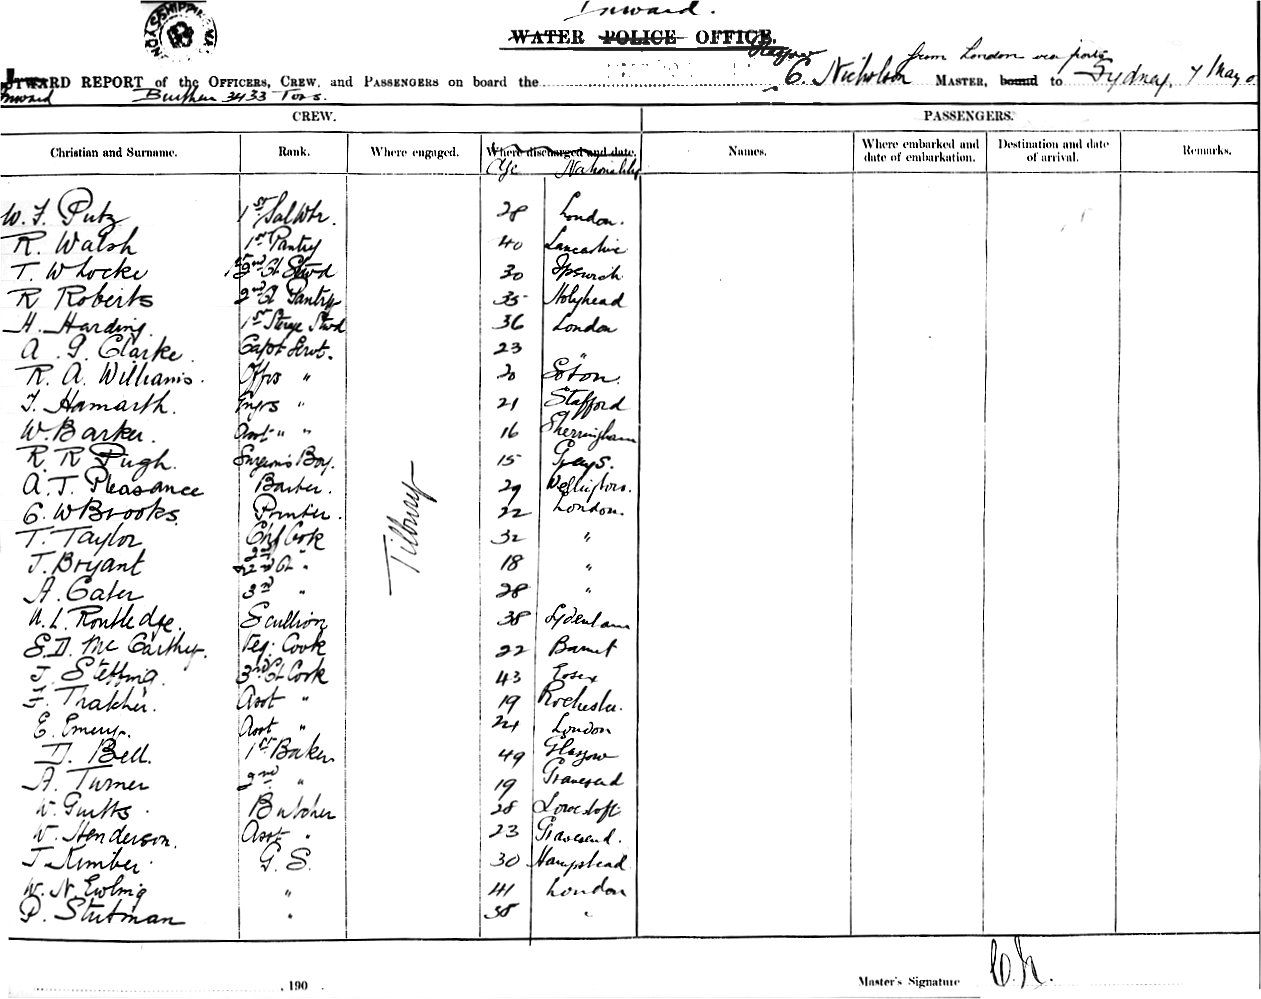 Inward.
WATER POLICE OFFICE.
Glasgow
from London via ports
INWARD REPORT of the OFFICERS, CREW, and PASSENGERS on board the C. Nicholson MASTER, bound to Sydney, 7 May
Inward Burthen 3433 Tons.
CREW. PASSENGERS.
Christian and Surname. Rank. Where engaged. Where discharged and date. Names. Where embarked and date of embarkation. Destination and date of arrival. Remarks.
Age Nationality
W. F. Putz 1st Sal Wtr. 28 London.
R. Walsh 1st Pantry 40 Lancashire
T. W Locke 2nd Cl Stwd 30 Ipswich
R Roberts 2nd Cl Pantry 35 Holyhead
H. Harding. 1st Sterge Stwd 36 London
A. G. Clarke. Capts Servt. 23 "
R. A. Williams. Offrs " 20 Soton.
T. Hamarth. Engrs " 21 Stafford
W. Barker. Asst " " 16 Sherringham
R. R Pugh. Surgeon's Boy. 15 Grays.
A. T. Pleasance Barber. 29 Wellington.
C. W Brooks. Printer. 22 London.
T. Taylor Chf Cook 32 "
J. Bryant 2nd Cl " 18 "
A. Cater 3rd " 28 "
Routledge. Scullion 38 Sydenham
E. D. McCarthy. Veg. Cook 22 Barnet
J. Stebbing. 3rd Cl Cook 43 Essex
F. Thatcher. Asst " 19 Rochester.
E. Emery. Asst " 24 London
D. Bell. 1st Baker 49 Glasgow
A. Turner 2nd " 19 Gravesend
W. Butcher 28 Lowestoft
W. Henderson. Asst " 23 Gravesend.
J Kimber. G. S. 30 Hampstead
W. N. " 41 London
P. Stutman " 38 "
Tilbury
190
Master's Signature C. N.